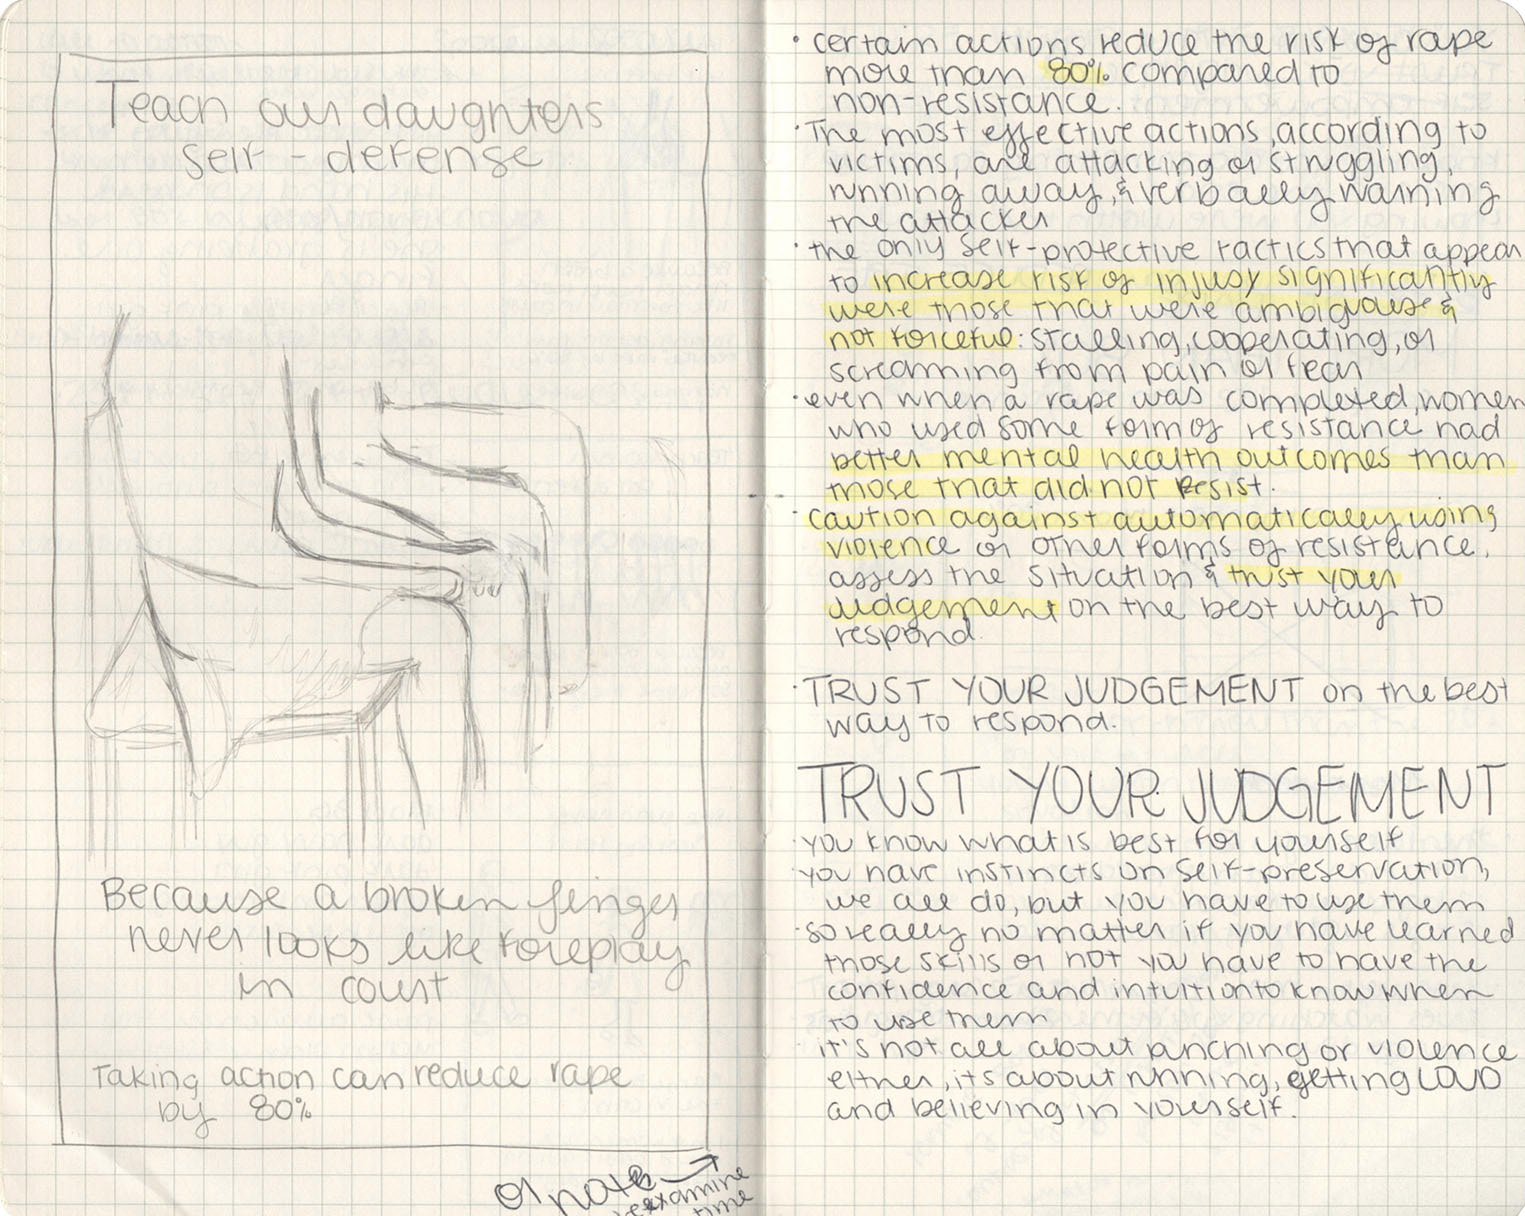 Teach our daughters
self-defense
Because a broken finger
never looks like foreplay
in court
Taking action can reduce rape
by 80%
or note
reexamine
time
• certain actions reduce the risk of rape
more than 80% compared to
non-resistance.
• The most effective actions, according to
victims, are attacking or struggling,
running away, & verbally warning
the attacker
• the only self-protective tactics that appear
to increase risk of injusy significantly
were those that were ambiguouse &
not forceful: stalling, cooperating, or
screaming from pain or fear
• even when a rape was completed, women
who used some form of resistance had
better mental health outcomes than
those that did not resist.
• caution against automatically using
violence or other forms of resistance.
assess the situation & trust your
judgement on the best way to
respond.
• TRUST YOUR JUDGEMENT on the best
way to respond.
TRUST YOUR JUDGEMENT
• you know what is best for yourself
• you have instincts on self-preservation,
we all do, but you have to use them
• so really no matter if you have learned
those skills or not you have to have the
confidence and intuition to know when
to use them
• it's not all about punching or violence
either, its about running, getting LOUD
and believing in yourself.